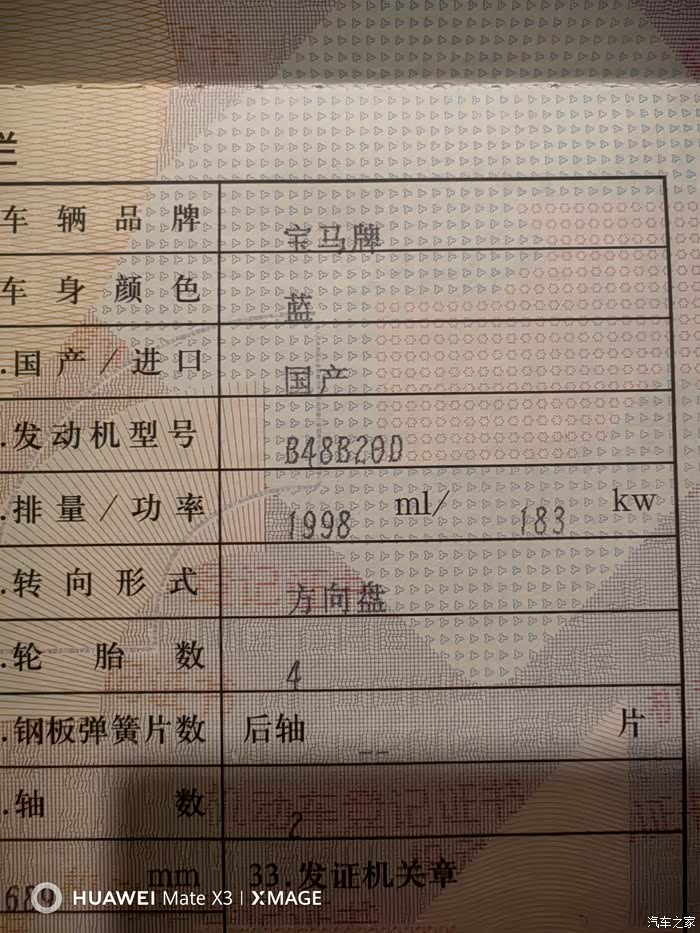 车辆品牌 宝马牌
车身颜色 蓝
.国产/进口 国产
.发动机型号 B48B20D
.排量/功率 1998 ml/ 183 kw
.转向形式 方向盘
.轮胎数 4
.钢板弹簧片数 后轴 -- 片
.轴数 2
689 mm 33.发证机关章
HUAWEI Mate X3 | XMAGE
汽车之家